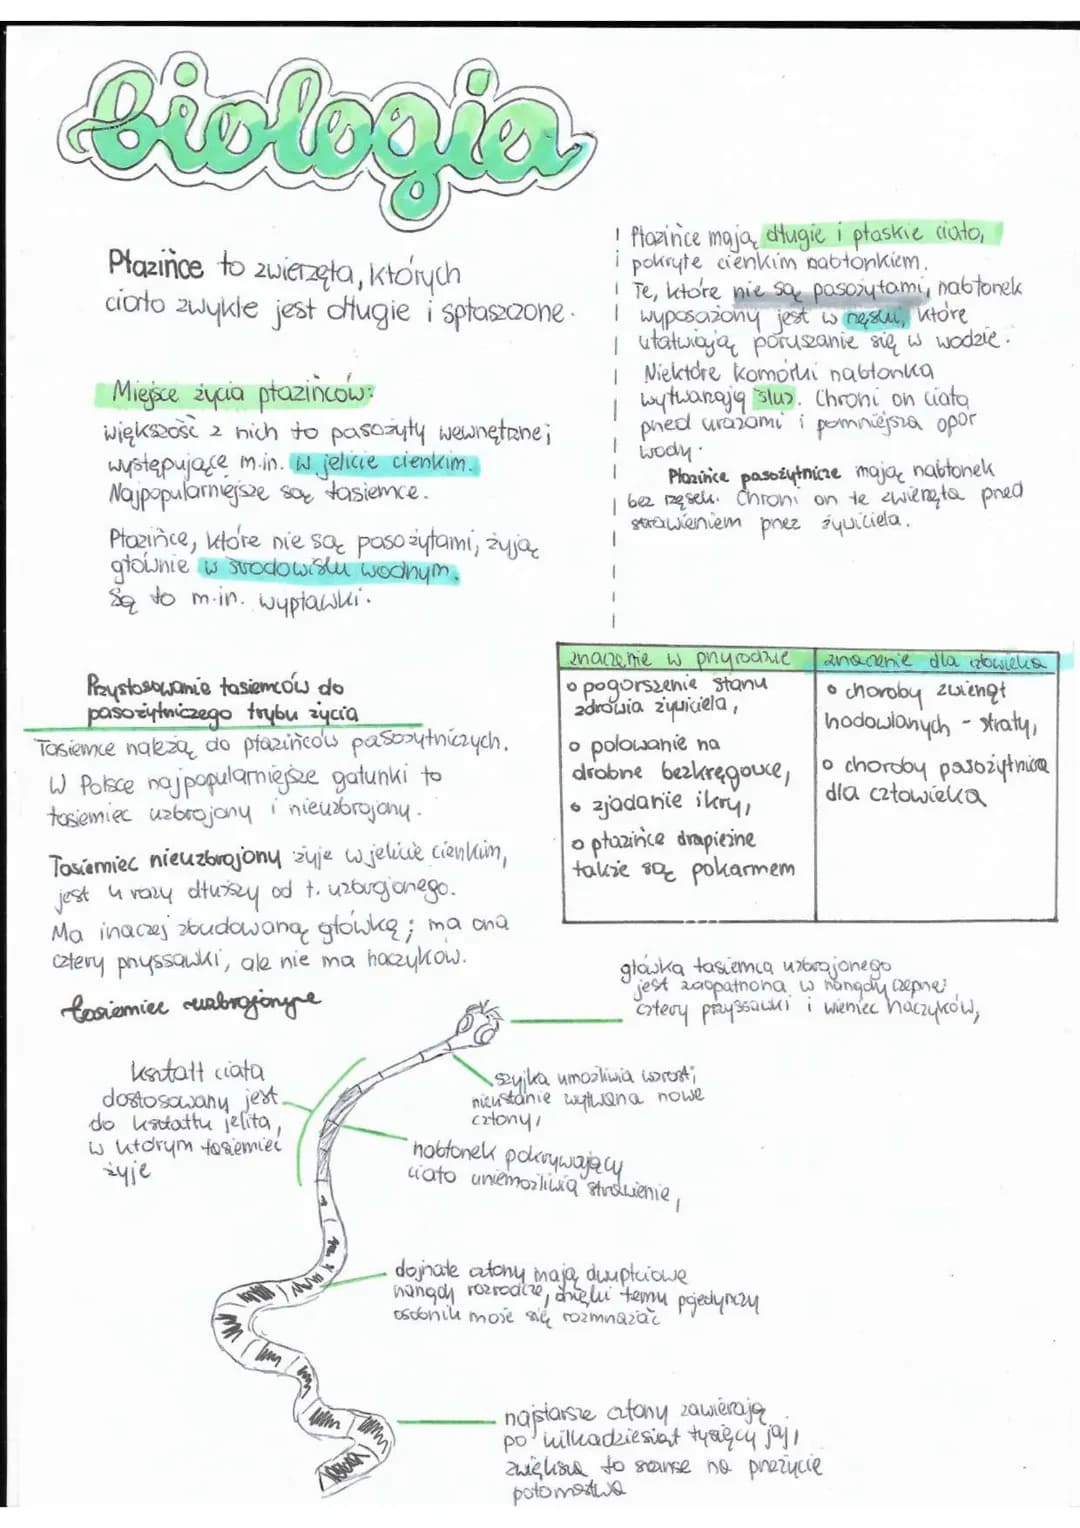 Biologia
Płazińce to zwierzęta, których
ciało zwykle jest długie i spłaszczone.
Miejsce życia płazińców:
większość z nich to pasożyty wewnętrznej
występujące m.in. w jelicie cienkim.
Najpopularniejsze są tasiemce.
Płazińce, które nie są pasożytami, żyją
głównie w środowisku wodnym.
Są to m.in. wypławki.
! Płazińce mają długie i płaskie ciało,
pokryte cienkim nabłonkiem.
Te, które nie są pasożytami, nabłonek
wyposażony jest w rzęski, które
ułatwiają poruszanie się w wodzie.
Niektóre komórki nabłonka
wytwarzają śluz. Chroni on ciało
przed urazami i pomniejsza opór
wody.
Płazińce pasożytnicze mają nabłonek
bez rzęsek. Chroni on te zwierzęta przed
strawieniem przez żywiciela.
Przystosowanie tasiemców do
pasożytniczego trybu życia
Tasiemce należą do płazińców pasożytniczych.
W Polsce najpopularniejsze gatunki to
tasiemiec uzbrojony i nieuzbrojony.
Tasiemiec nieuzbrojony żyje w jelicie cienkim,
jest 4 razy dłuższy od t. uzbrojonego.
Ma inaczej zbudowaną główkę; ma ona
cztery przyssawki, ale nie ma haczyków.
znaczenie w przyrodzie
o pogorszenie stanu
zdrowia żywiciela,
o polowanie na
drobne bezkręgowce,
o zjadanie ikry,
o płazińce drapieżne
także są pokarmem
znaczenie dla człowieka
o choroby zwierząt
hodowlanych - straty,
o choroby pasożytnicze
dla człowieka
tasiemiec
główka tasiemca uzbrojonego
jest zaopatrzona w narządy czepne:
cztery przyssawki i wieniec haczyków,
kształt ciała
dostosowany jest
do kształtu jelita,
w którym tasiemiec
żyje
szyjka umożliwia wzrost;
nieustanie wytwarza nowe
człony,
nabłonek pokrywający
ciało uniemożliwia strawienie,
dojrzałe człony mają dwupłciowe
narządy rozrodcze, dzięki temu pojedynczy
osobnik może się rozmnażać
najstarsze człony zawierają
po kilkadziesiąt tysięcy jaj,
zwiększa to szanse na przeżycie
potomostwa